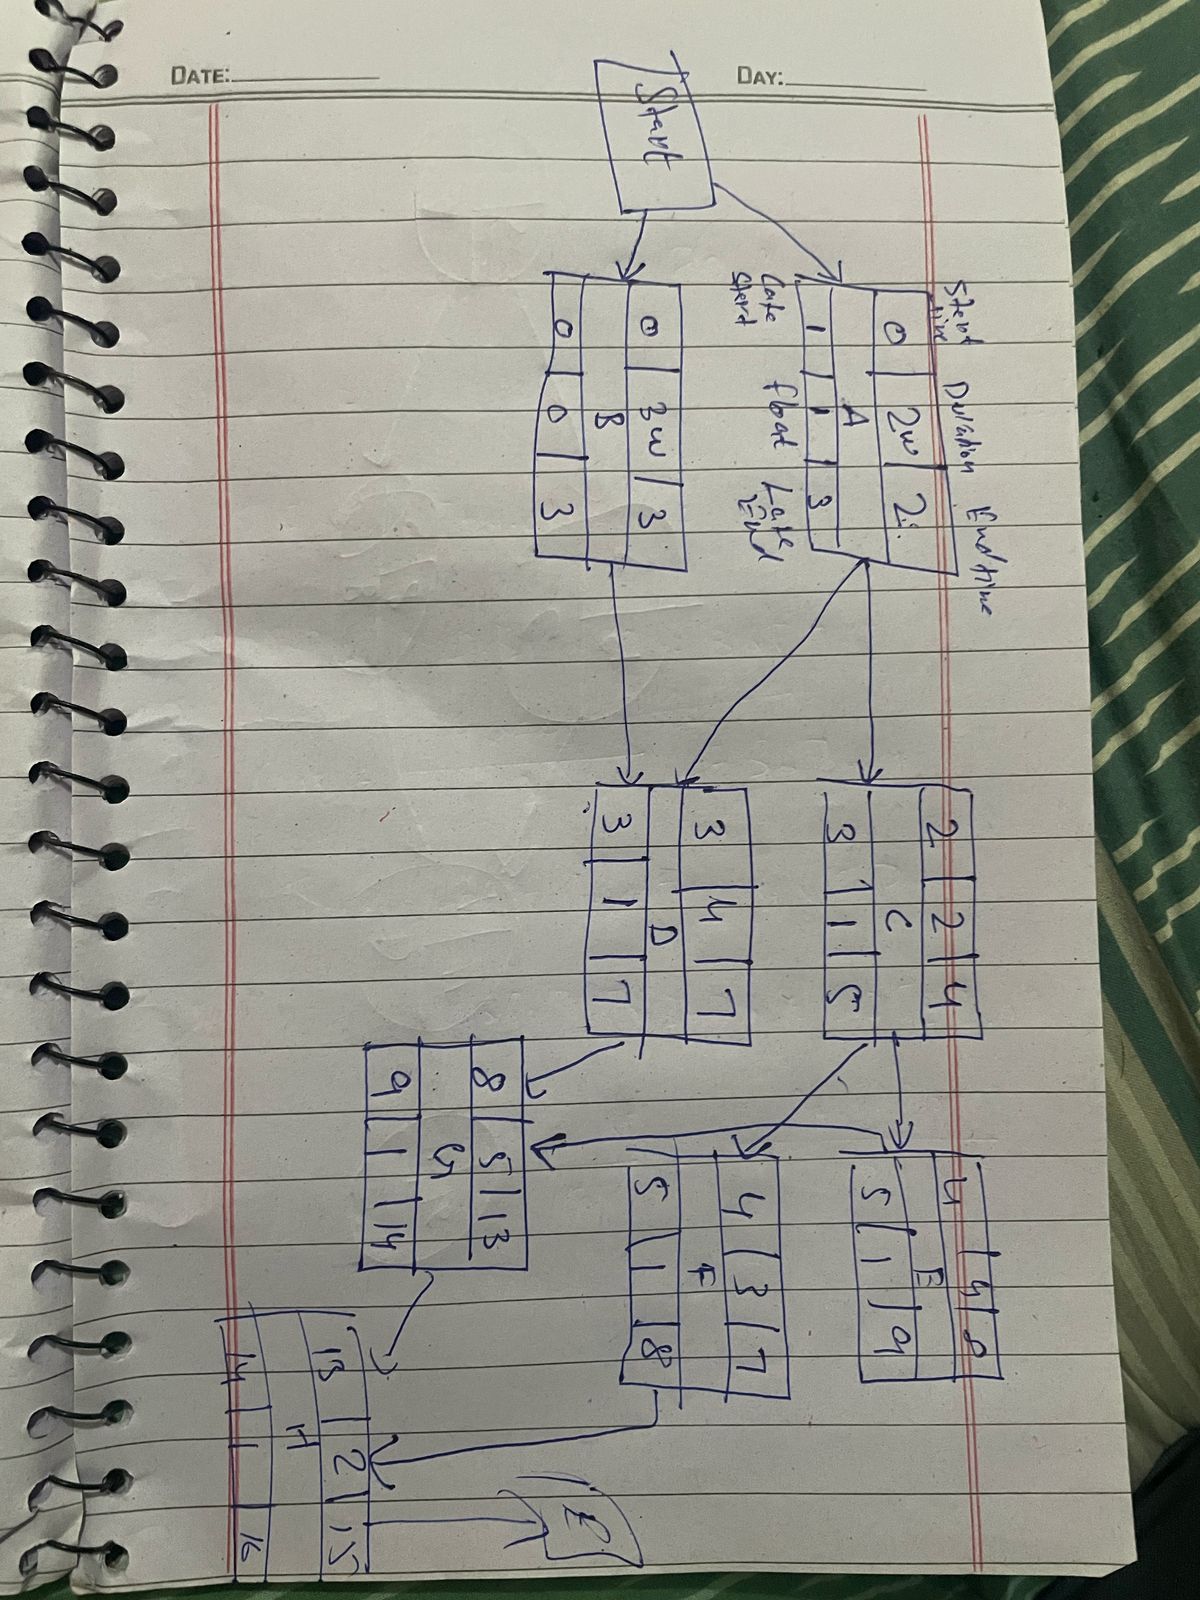 Start time Duration End time
0 2w 2
A
1 1 3
Late Start float Late End
Start
0 3w 3
B
0 0 3
2 2 4
C
3 1 5
3 4 7
D
3 1 7
4 4 8
E
5 1 9
4 3 7
F
5 1 8
8 5 13
G
9 1 14
13 2 15
H
14 1 16
E
DAY:
DATE: